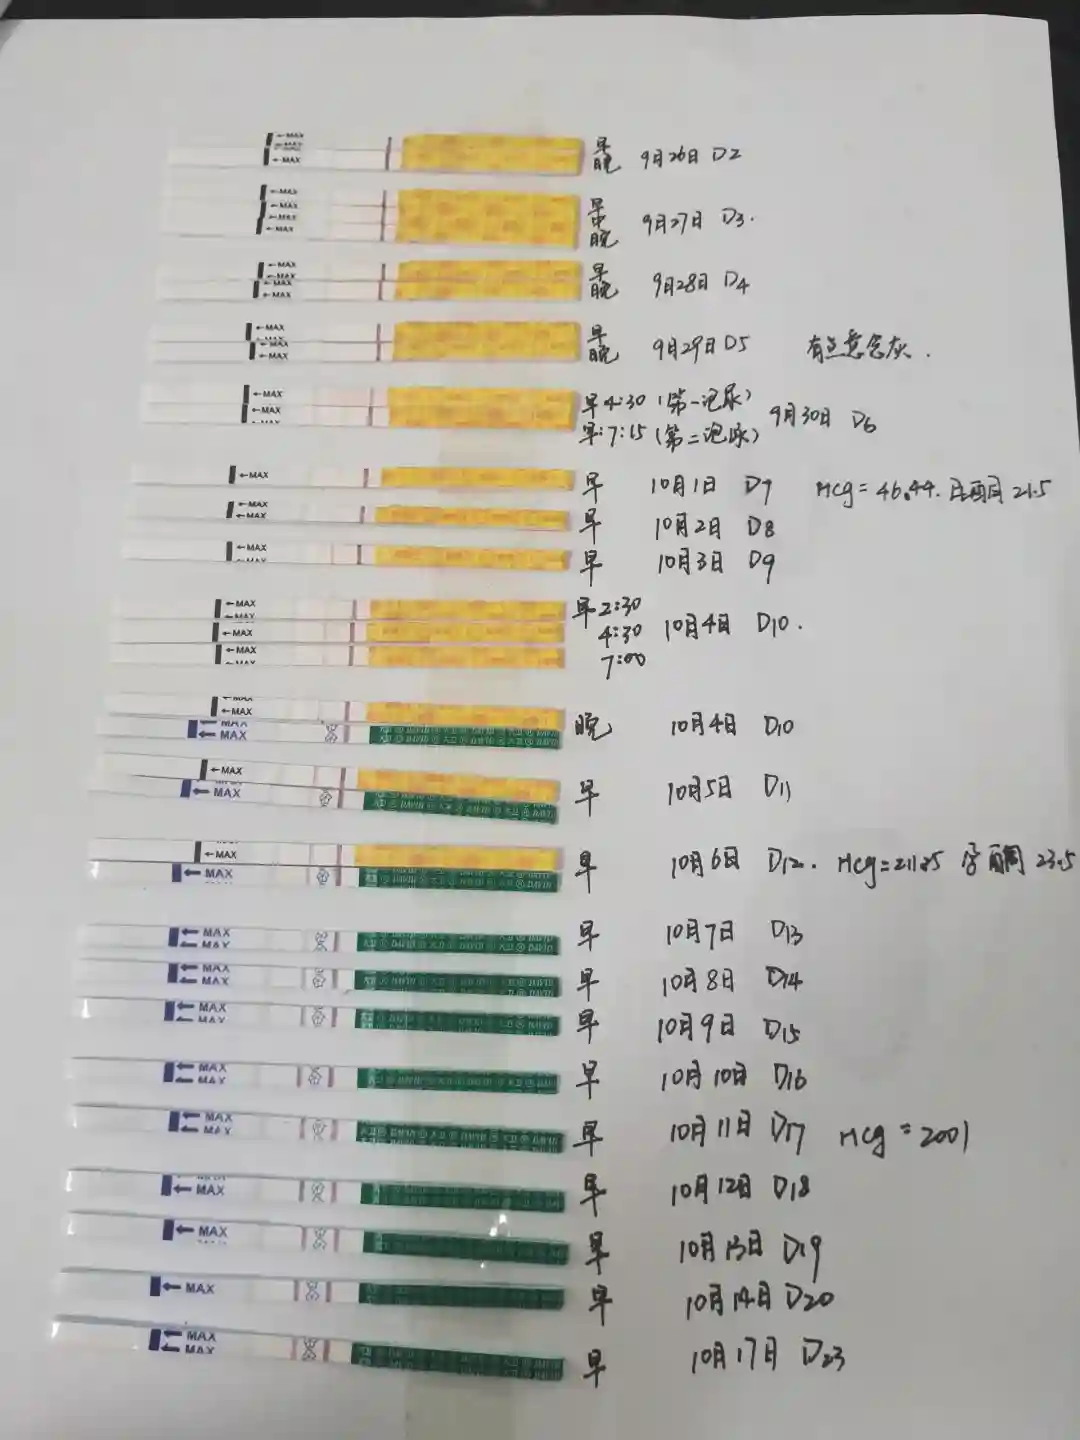 ←MAX
←MAX
早
晚 9月26日 D2
←MAX
←MAX
←MAX
←MAX
早
中
晚 9月27日 D3.
←MAX
←MAX
←MAX
早
晚 9月28日 D4
←MAX
←MAX
早
晚 9月29日 D5 有点意念灰.
←MAX
←MAX
早4:30(第一泡尿)
早:7:15(第二泡尿) 9月30日 D6
←MAX 早 10月1日 D7 Hcg=46.44. 孕酮21.5
←MAX
←MAX 早 10月2日 D8
←MAX
←MAX 早 10月3日 D9
←MAX
←MAX
←MAX
←MAX
早2:30
4:30 10月4日 D10.
7:00
←MAX
←MAX
←MAX
←MAX 大卫 DAVID 晚 10月4日 D10
←MAX
←MAX 大卫 DAVID 早 10月5日 D11
←MAX
←MAX 大卫 DAVID 早 10月6日 D12. Hcg=211.85 孕酮 23.5
←MAX
←MAX 大卫 DAVID 早 10月7日 D13
←MAX
←MAX 大卫 DAVID 早 10月8日 D14
←MAX
←MAX 大卫 DAVID 早 10月9日 D15
←MAX
←MAX 大卫 DAVID 早 10月10日 D16
←MAX
←MAX 大卫 DAVID 早 10月11日 D17 Hcg=2001
←MAX 早 10月12日 D18
←MAX 早 10月13日 D19
←MAX 早 10月14日 D20
←MAX
←MAX 早 10月17日 D23